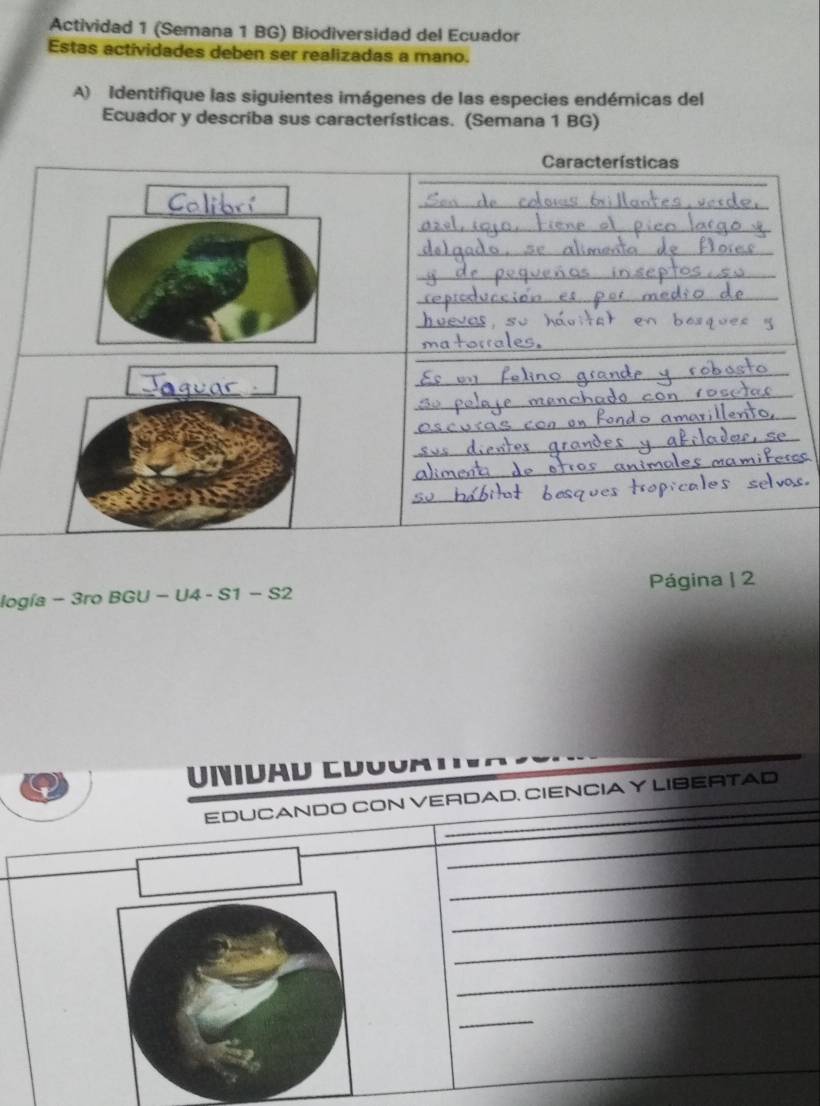 Actividad 1 (Semana 1 BG) Biodiversidad del Ecuador
Estas actividades deben ser realizadas a mano.
A) Identifique las siguientes imágenes de las especies endémicas del
Ecuador y describa sus características. (Semana 1 BG)
Características
Calibrí
Son de colores brillantes, verde,
azul, rojo, tiene el pico largo y
delgado, se alimenta de flores
y de pequeños inseptos, su
reproducción es por medio de
huevos, su háuitat en bosques y
matorrales.
Jaguar.
Es un felino grande y robusto
su pelaje manchado con rosetas
oscuras con un fondo amarillento,
sus dientes grandes y afilados, se
alimenta de otros animales mamiferos
su hábitat bosques tropicales selvas.
logía – 3ro BGU – U4 - S1 – S2
Página | 2
UNIDAD
EDUCANDO CON VERDAD, CIENCIA Y LIBERTAD